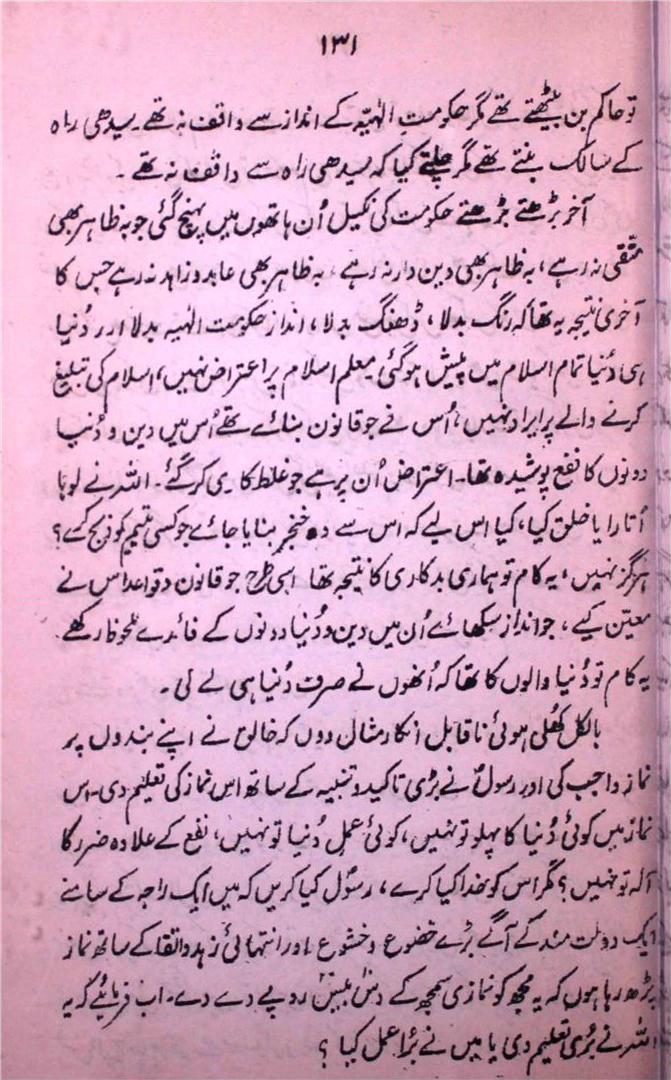 ۱۳۱
تو حاکم بن بیٹھتے تھے مگر حکومتِ الٰہیّہ کے انداز سے واقف نہ تھے۔ سیدھی راہ
کے سالک بنتے تھے مگر چلتے کیا کہ سیدھی راہ سے واقف نہ تھے۔
آخر بڑھتے بڑھتے حکومت کی نکیل اُن ہاتھوں میں پہنچ گئی جو بہ ظاہر بھی
متّقی نہ رہے، بہ ظاہر بھی دین دار نہ رہے، بہ ظاہر بھی عابد و زاہد نہ رہے جس کا
آخری نتیجہ یہ تھا کہ رنگ بدلا، ڈھنگ بدلا، انداز حکومت الٰہیہ بدلا اور دُنیا
ہی دُنیا تمام اسلام میں پیش ہوگئی معلم اسلام پر اعتراض نہیں، اسلام کی تبلیغ
کرنے والے پر ایراد نہیں، اُس نے جو قانون بنائے تھے اُس میں دین و دُنیا
دونوں کا نفع پوشیدہ تھا۔ اعتراض اُن پر ہے جو غلط کاری کر گئے۔ اللہ نے لوہا
اُتارا یا خلق کیا، کیا اس لیے کہ اس سے وہ خنجر بنایا جائے جو کسی یتیم کو ذبح کرے؟
ہرگز نہیں، یہ کام تو ہماری بدکاری کا نتیجہ تھا اسی طرح جو قانون و قواعد اس نے
معیّن کیے، جو انداز سکھائے اُن میں دین و دُنیا دونوں کے فائدے ملحوظ رکھے
یہ کام تو دُنیا والوں کا تھا کہ اُنھوں نے صرف دُنیا ہی لے لی۔
بالکل کُھلی ہوئی ناقابل انکار مثال دوں کہ خالق نے اپنے بندوں پر
نماز واجب کی اور رسولؐ نے بڑی تاکید و تنبیہ کے ساتھ اس نماز کی تعلیم دی۔ اس
نماز میں کوئی دُنیا کا پہلو تو نہیں، کوئی عمل دُنیا تو نہیں، نفع کے علاوہ ضرر کا
آلہ تو نہیں؟ مگر اس کو خدا کیا کرے، رسولؐ کیا کریں کہ میں ایک راجہ کے سامنے
ایک دولت مند کے آگے بڑے خضوع و خشوع اور انتہائی زہد و اتقا کے ساتھ نماز
پڑھ رہا ہوں کہ یہ مجھ کو نمازی سمجھ کے دس بیس روپے دے دے۔ اب فرمائیے کہ یہ
اللہ نے بُری تعلیم دی یا میں نے بُرا عمل کیا؟